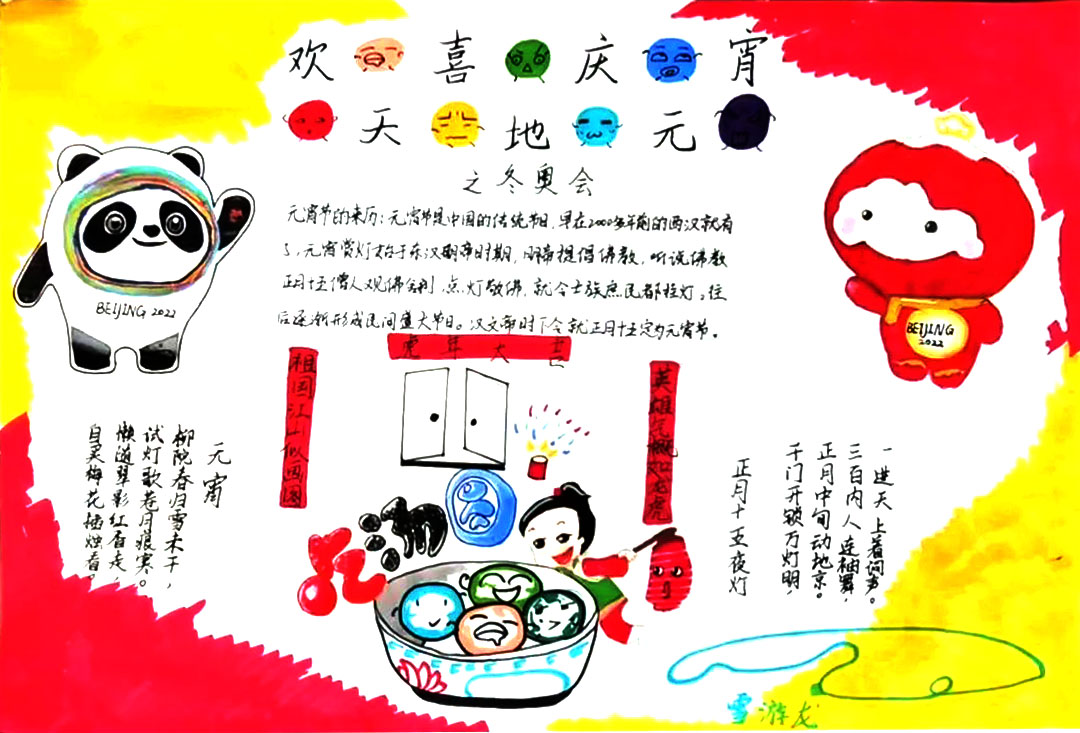 欢 喜 庆 宵
天 地 元
之冬奥会
元宵节的来历:元宵节是中国的传统节日,早在2000多年前的西汉就有
了,元宵赏灯始于东汉明帝时期,明帝提倡佛教,听说佛教
正月十五僧人观佛舍利,点灯敬佛,就令士族庶民都挂灯。往
后逐渐形成民间盛大节日。汉文帝时下令就正月十五定为元宵节。
BEIJING 2022
BEIJING
2022
虎年大吉
祖国江山似画图
英雄气概如龙虎
元宵
柳院春归雪未干,
试灯歌巷月痕寒。
懒追翠影红香走,
自买梅花烛看。
正月十五夜灯
千门开锁万灯明,
正月中旬动地京。
三百内人连袖舞,
一进天上着词声。
雪游龙